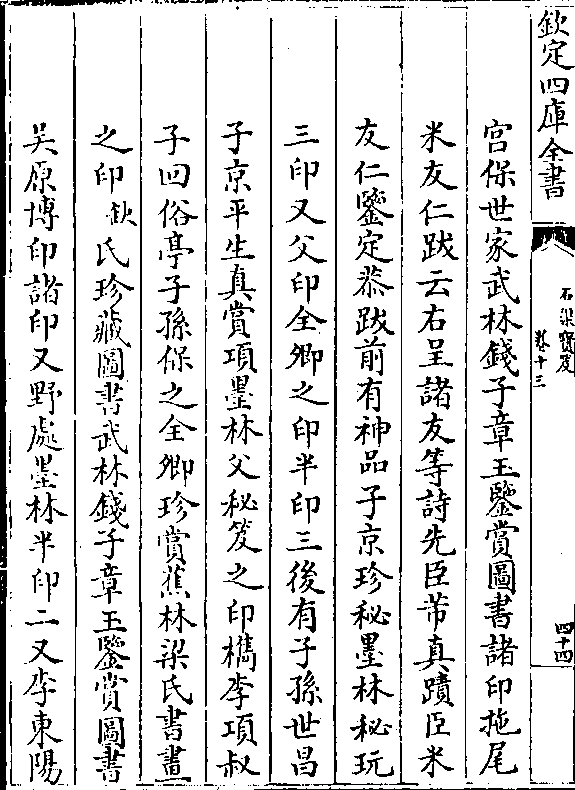 欽定四庫全書
石渠寶笈
卷十三
四十四
宫保世家武林錢子章王鑒賞圖書諸印拖尾
米友仁跋云右呈諸友等詩先臣芾真蹟臣米
友仁鑒定恭跋前有神品子京珍秘墨林秘玩
三印又父印全卿之印半印三後有子孫世昌
子京平生真賞項墨林父秘笈之印檇李項叔
子回俗亭子孫保之全卿珍賞蕉林梁氏書畫
之印 欽氏珍藏圖書武林錢子章王鑒賞圖書
吴原博印諸印又野處墨林半印二又李東陽